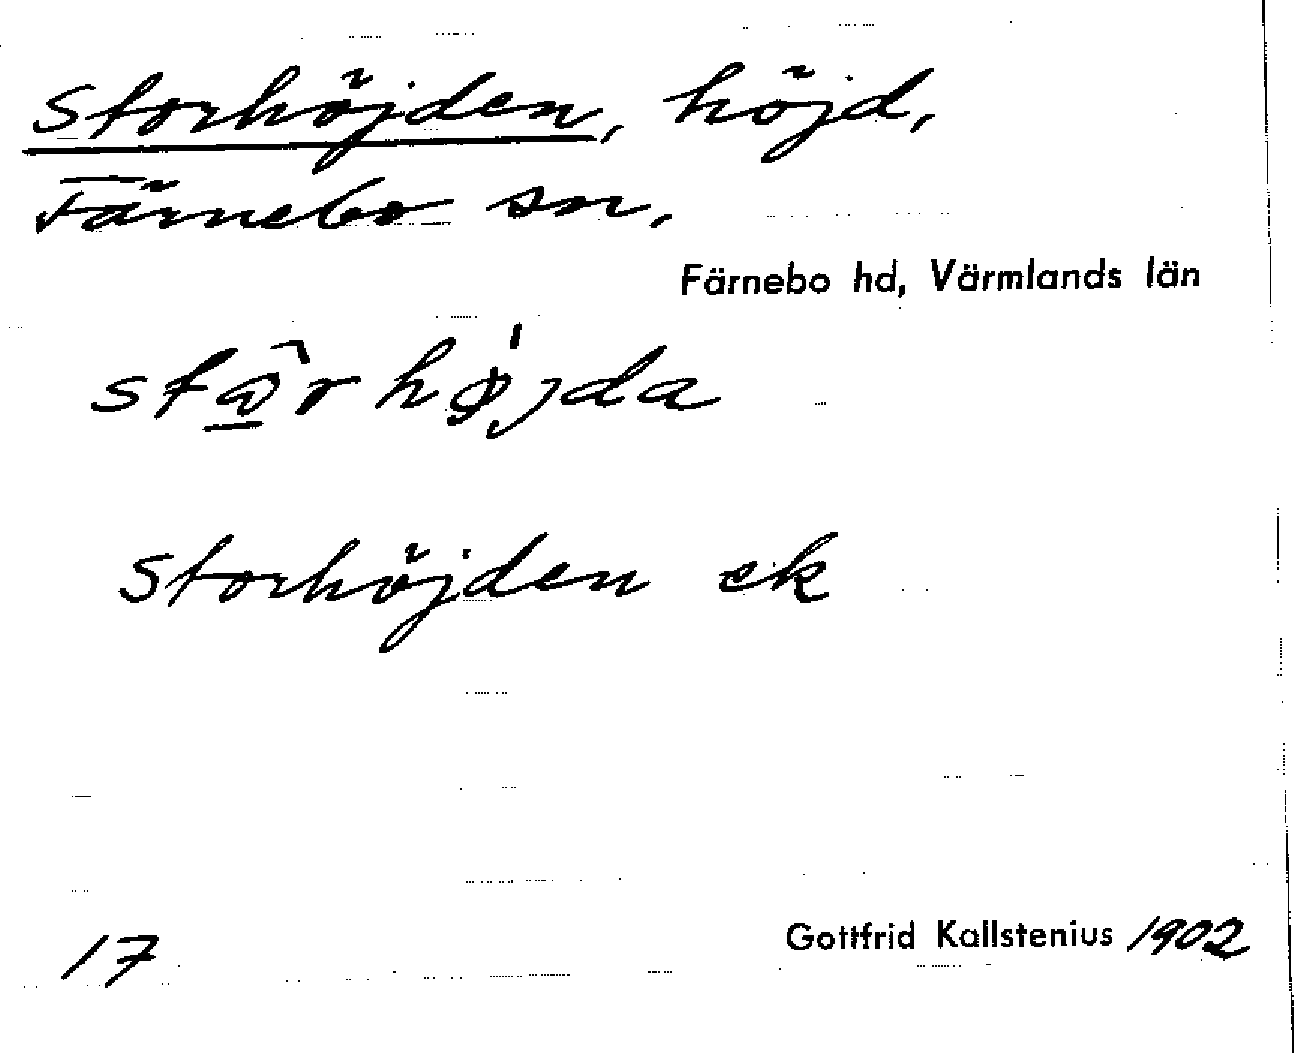 Storhöjden, höjd,
Färnebo sn.
Färnebo hd, Värmlands län
Storhöjden ek
17
Gottfrid Kallstenius 1902